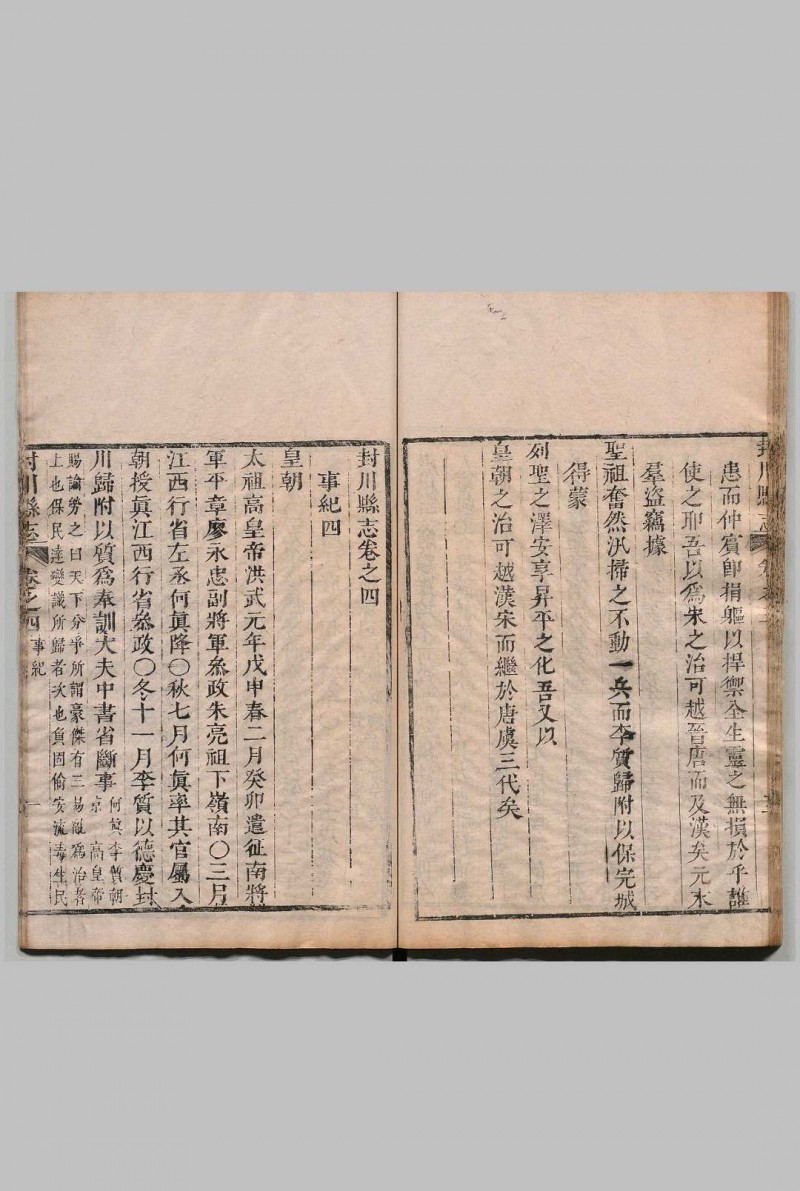 封川縣志
患而仲賓即捐軀以捍禦全生靈之無損於乎誰
使之耶吾以爲宋之治可越晉唐而及漢矣元末
羣盜竊據
聖祖奮然汎掃之不動一兵而李質歸附以保完城
得蒙
列聖之澤安享昇平之化吾又以
皇朝之治可越漢宋而繼於唐虞三代矣
封川縣志卷之四
事紀四
皇朝
太祖高皇帝洪武元年戊申春二月癸卯遣征南將
軍平章廖永忠副將軍叅政朱亮祖下嶺南〇三月
江西行省左丞何眞降〇秋七月何眞率其官屬入
朝授眞江西行省叅政〇冬十一月李質以德慶封
川歸附以質爲奉訓大夫中書省斷事
何眞李質朝
京高皇帝
賜諭勞之曰天下分爭所謂豪傑有三易亂爲治者
上也保民達變識所歸者次也負固偷安流毒生民
封川縣志
卷之四
事紀
一